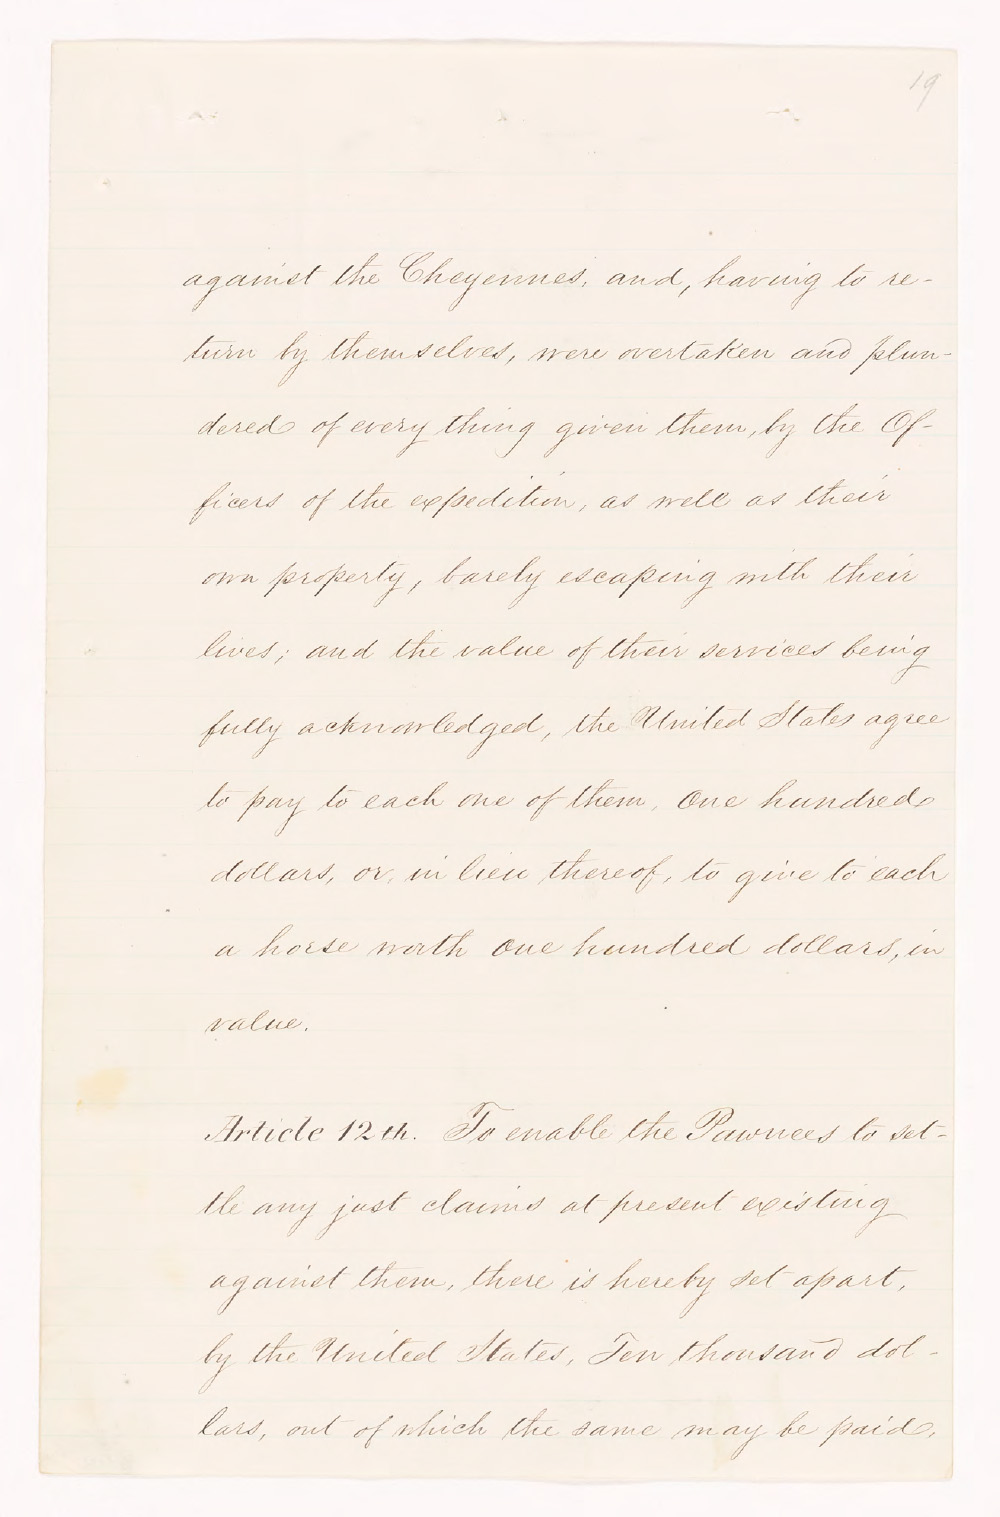 19
against the Cheyennes, and, having to re-
turn by themselves, were overtaken and plun-
dered of every thing given them, by the Of-
ficers of the expedition, as well as their
own property, barely escaping with their
lives; and the value of their services being
fully acknowledged, the United States agree
to pay to each one of them, One hundred
dollars, or, in lieu thereof, to give to each
a horse worth One hundred dollars, in
value.
Article 12th. To enable the Pawnees to set-
tle any just claims at present existing
against them, there is hereby set apart,
by the United States, Ten thousand dol-
lars, out of which the same may be paid,